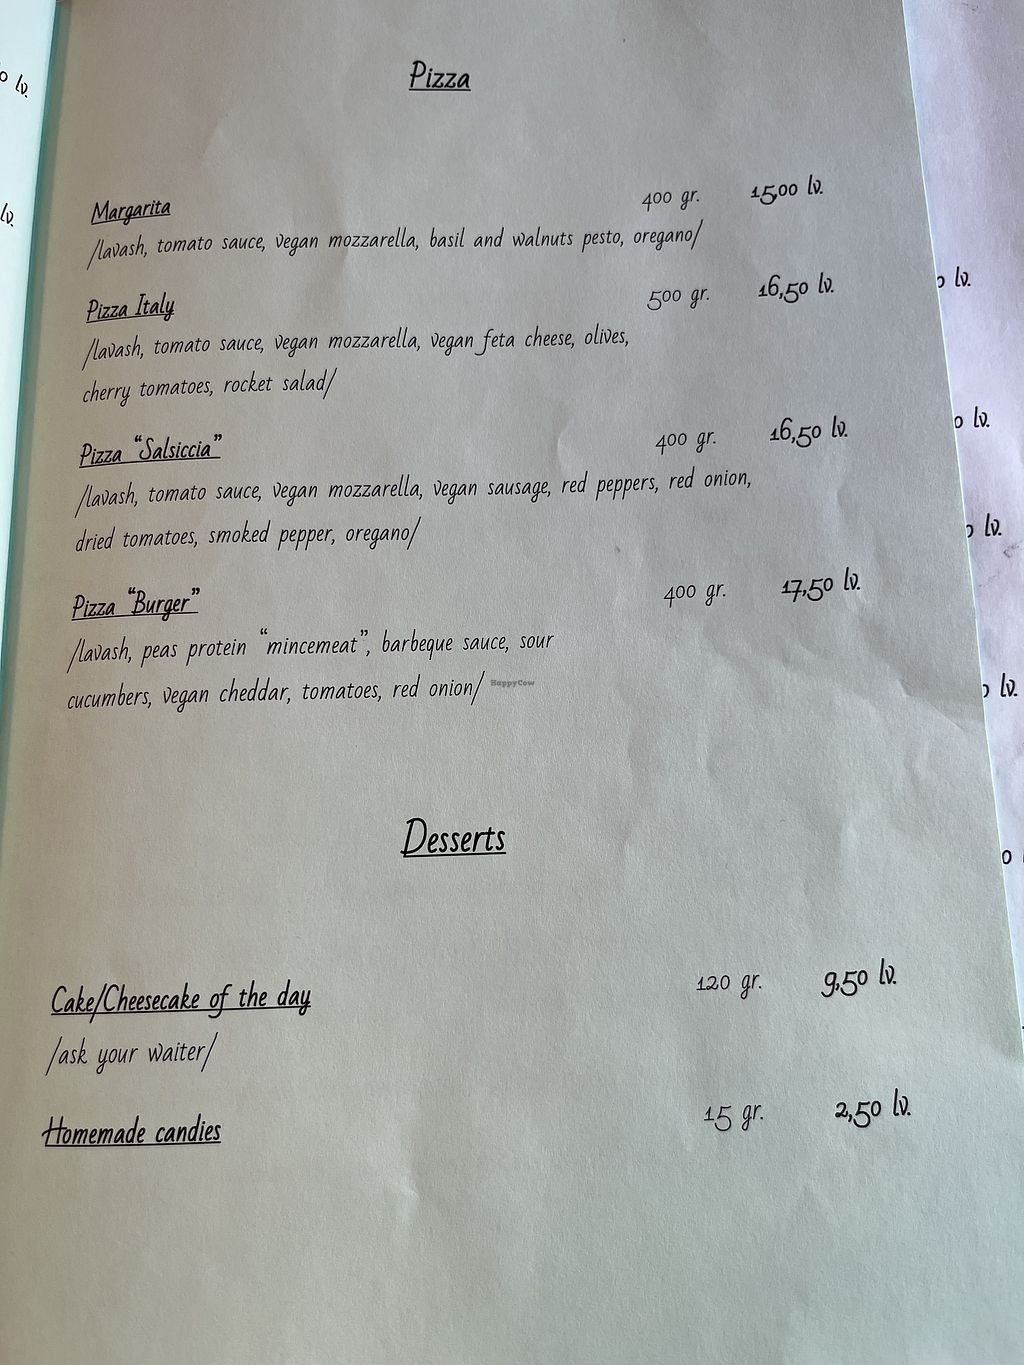 Pizza
Margarita 400 gr. 15,00 lv.
/lavash, tomato sauce, vegan mozzarella, basil and walnuts pesto, oregano/
Pizza Italy 500 gr. 16,50 lv.
/lavash, tomato sauce, vegan mozzarella, vegan feta cheese, olives,
cherry tomatoes, rocket salad/
Pizza “Salsiccia” 400 gr. 16,50 lv.
/lavash, tomato sauce, vegan mozzarella, vegan sausage, red peppers, red onion,
dried tomatoes, smoked pepper, oregano/
Pizza “Burger” 400 gr. 17,50 lv.
/lavash, peas protein “mincemeat”, barbeque sauce, sour
cucumbers, vegan cheddar, tomatoes, red onion/
HappyCow
Desserts
Cake/Cheesecake of the day 120 gr. 9,50 lv.
/ask your waiter/
Homemade candies 15 gr. 2,50 lv.
lv.
lv.
lv.
lv.
lv.
lv.